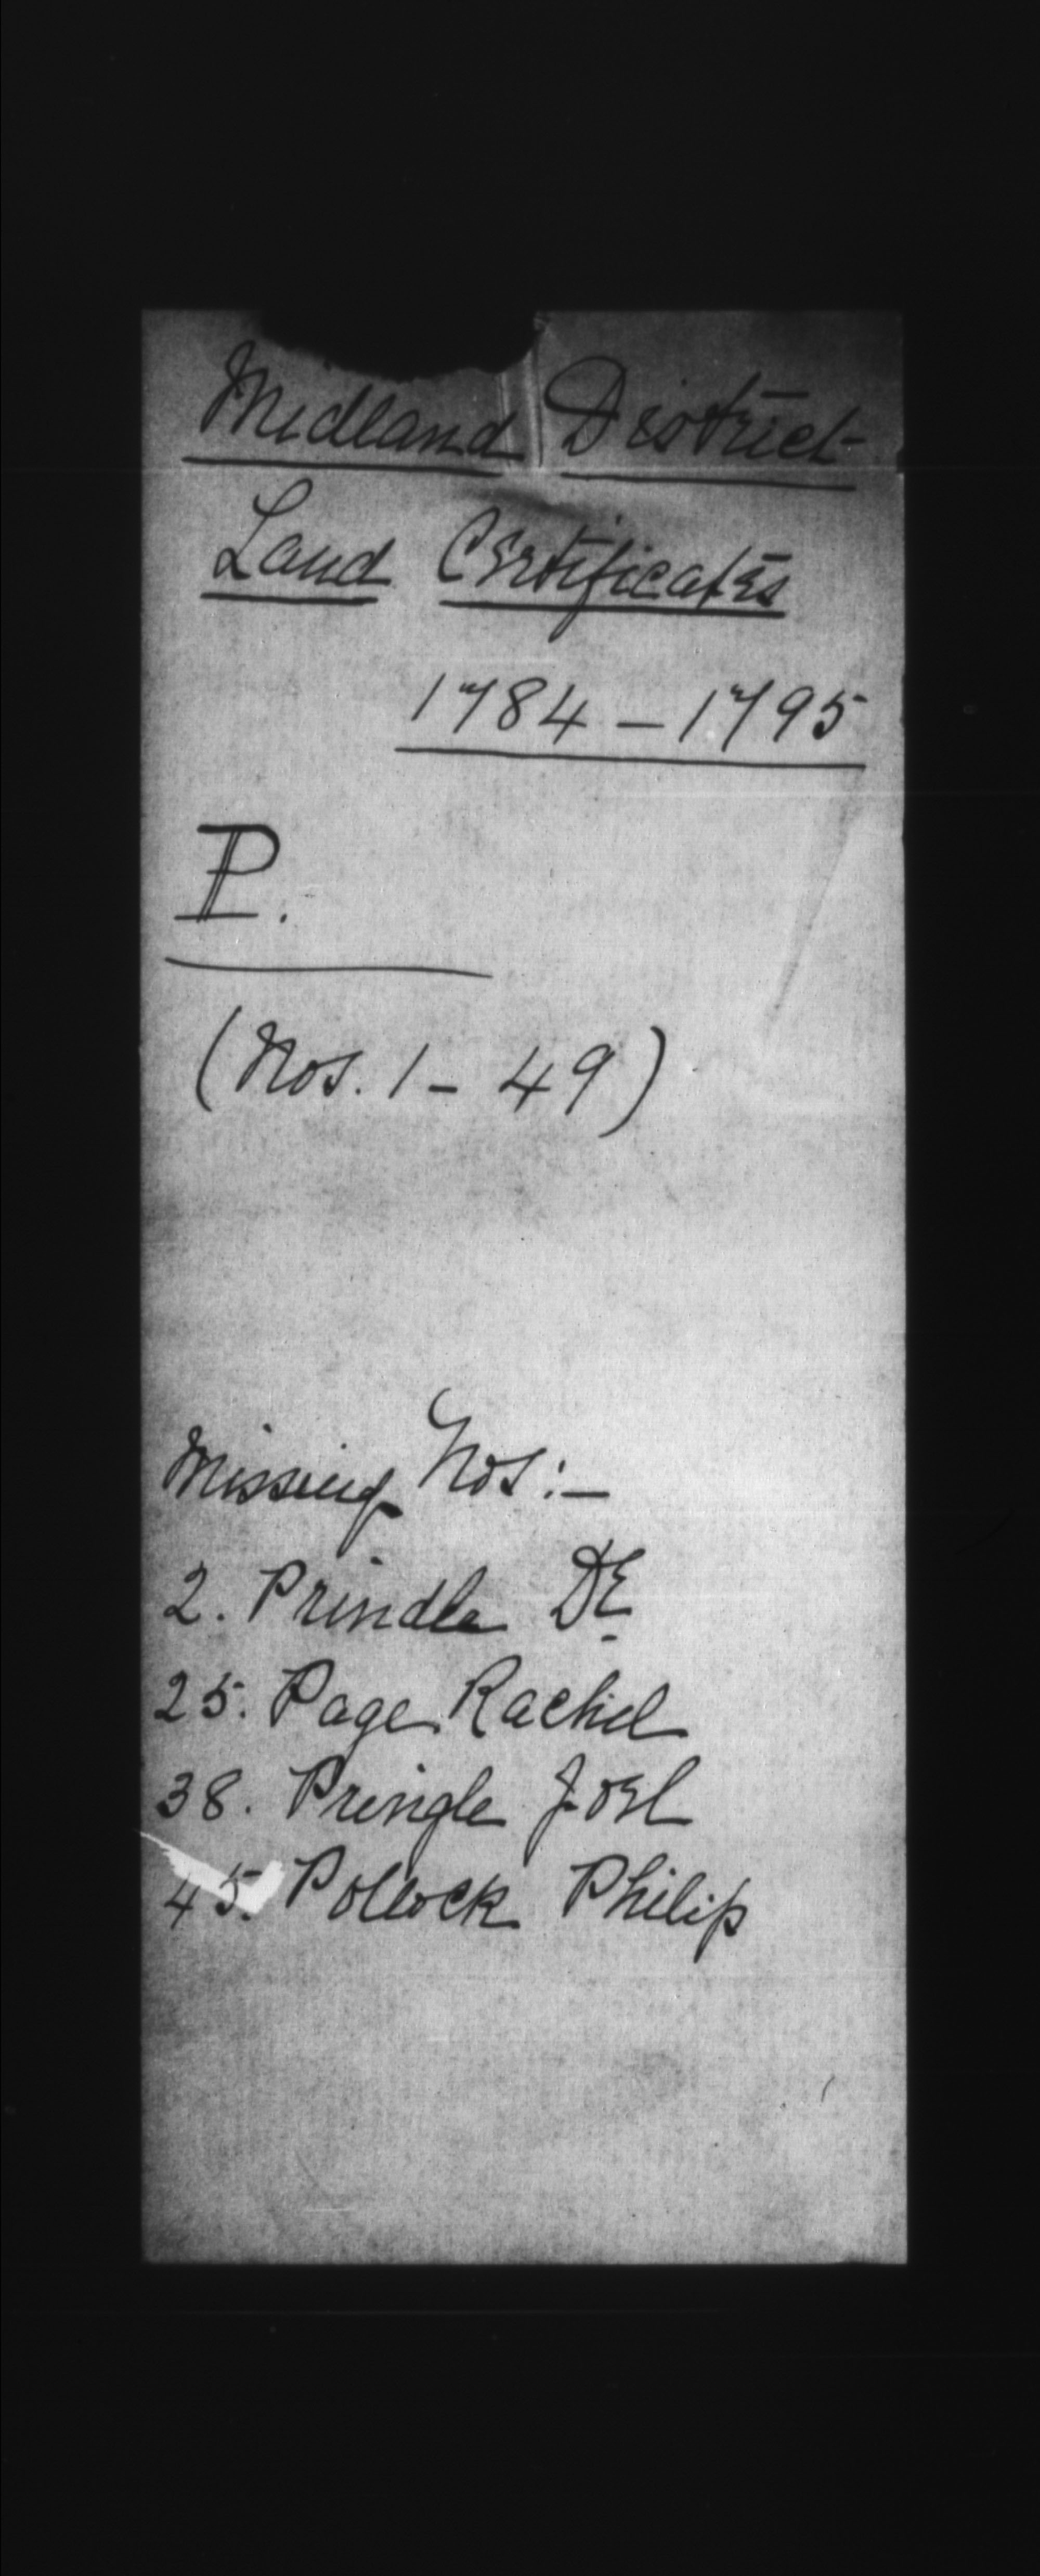 Midland District
Land Certificates
1784 - 1795
P.
(Nos. 1 - 49)
Missing Nos:-
2. Prindle Dr.
25. Page Rachel
38. Pringle Joel
45. Pollock Philip